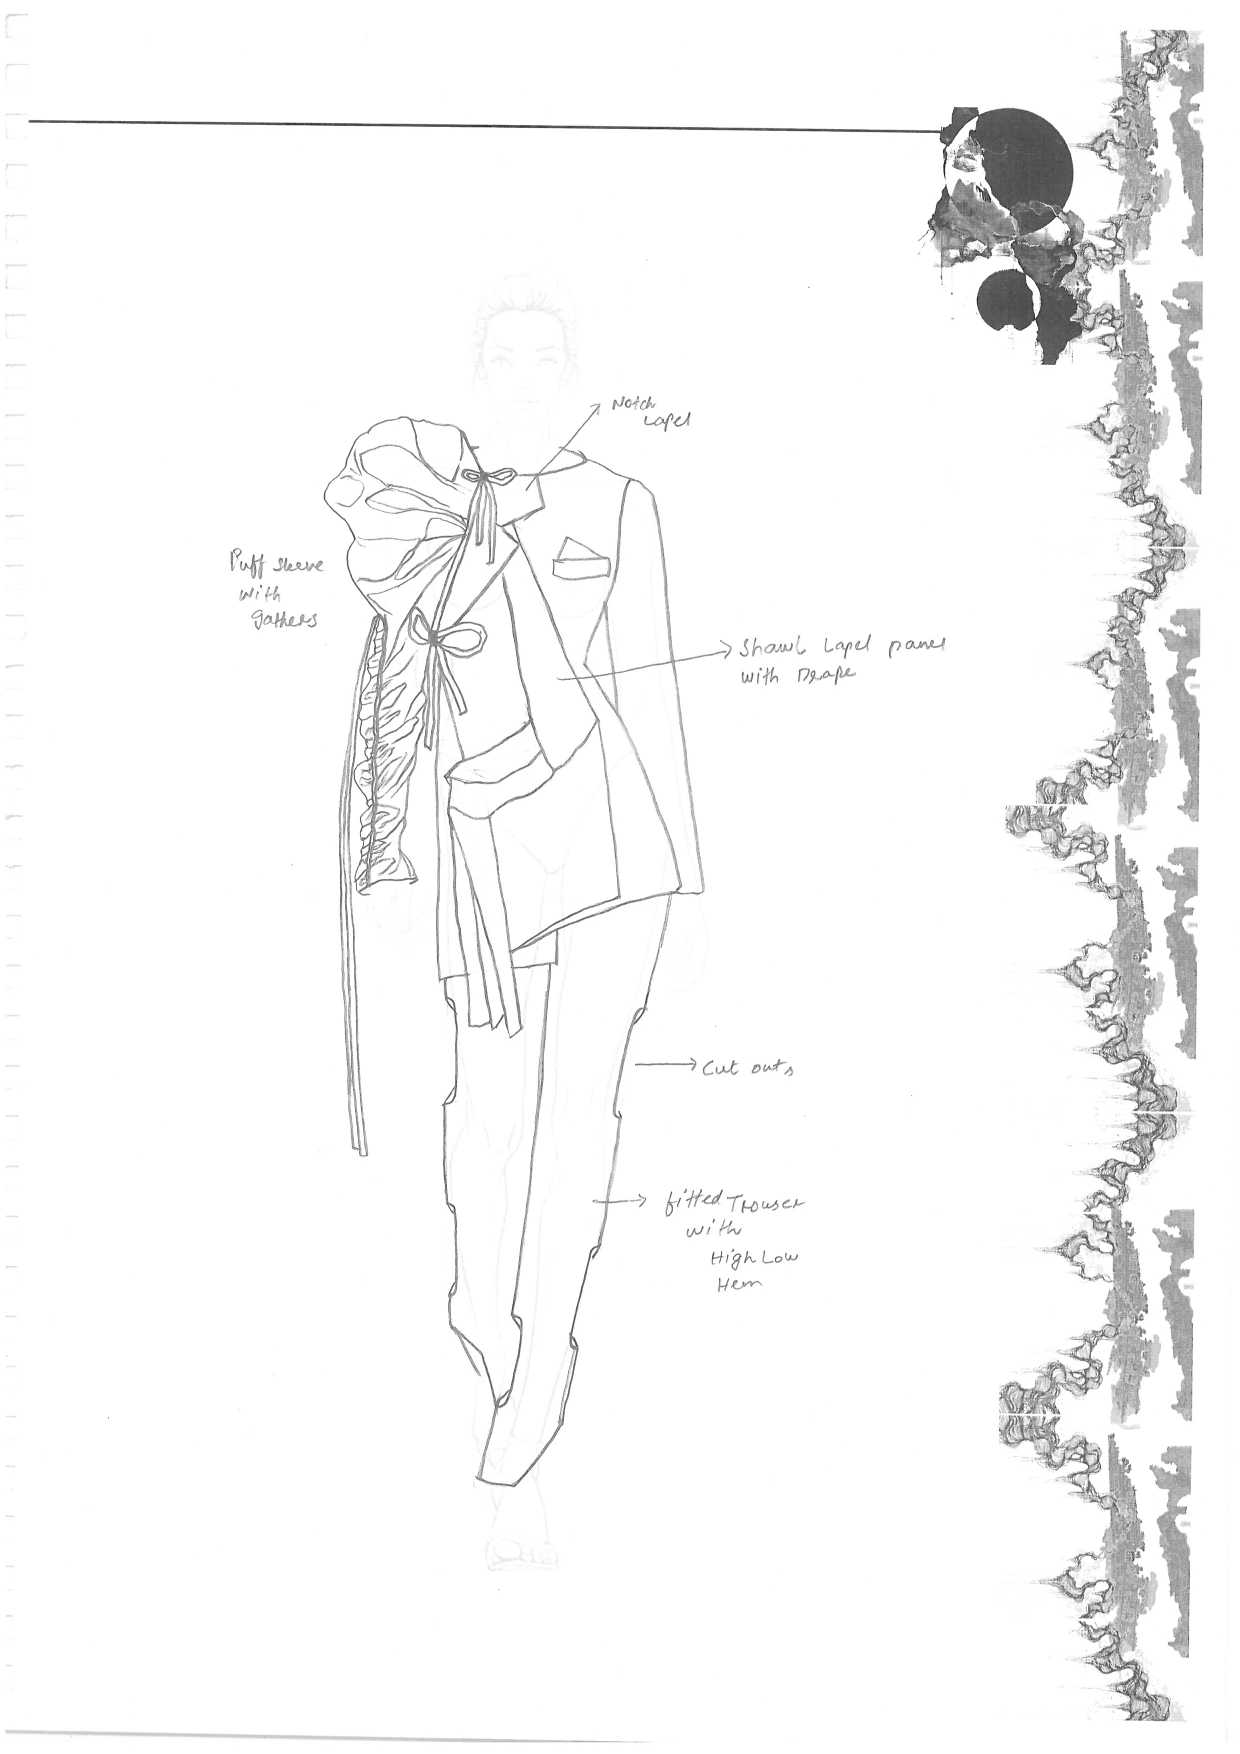 Notch
Lapel
Puff sleeve
with
gathers
Shawl Lapel panel
with Drape
Cut outs
fitted Trouser
with
High Low
Hem